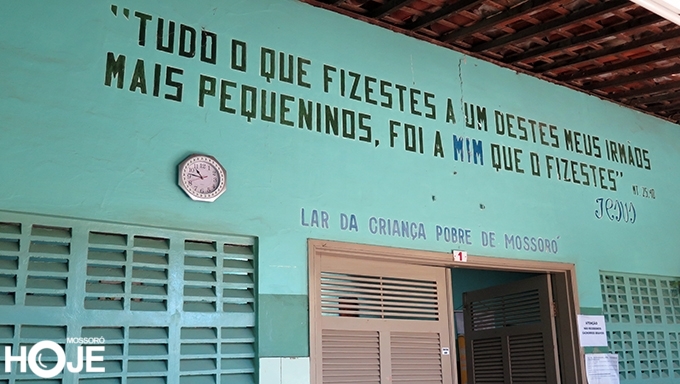 "TUDO O QUE FIZESTES A UM DESTES MEUS IRMÃOS
MAIS PEQUENINOS, FOI A MIM QUE O FIZESTES"
MT 25.40
JESUS
LAR DA CRIANÇA POBRE DE MOSSORÓ
1
ATENÇÃO
MOSSORÓ
HOJE